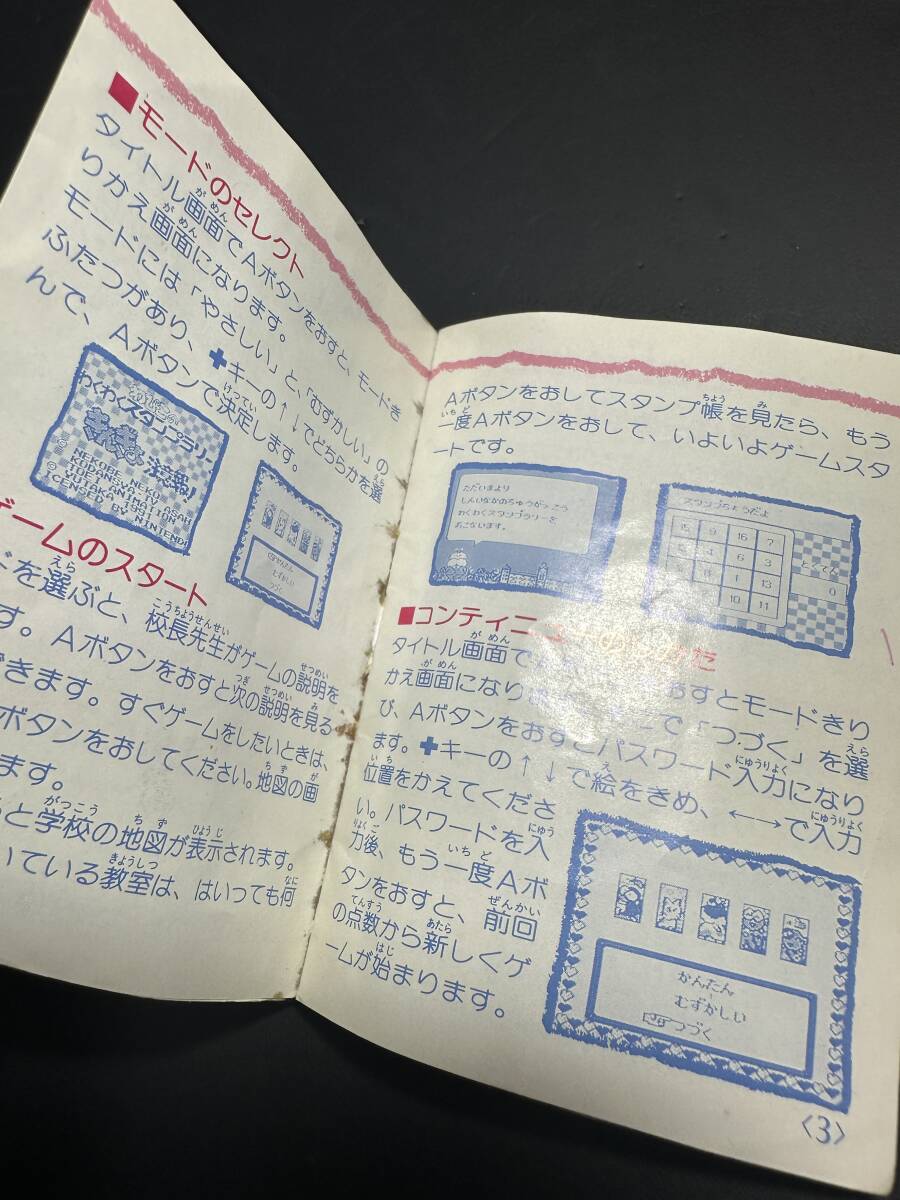 ■モードのセレクト
タイトル画面でAボタンをおすと、モードき
りかえ画面になります。
モードには「やさしい」と、「むずかしい」の
ふたつがあり、✚キーの↑↓でどちらかを選
んで、Aボタンで決定します。
わくわくスタンプラリー
NEKOBE.NEKO
KODANSYA
TOEI ANIMATION
YUTAKA 1991
LICENSED BY NINTENDO
むずかしい
つづく
ゲームのスタート
を選ぶと、校長先生がゲームの説明を
す。Aボタンをおすと次の説明を見る
できます。すぐゲームをしたいときは、
ボタンをおしてください。地図の画
ます。
と学校の地図が表示されます。
いている教室は、はいっても何
Aボタンをおしてスタンプ帳を見たら、もう
一度Aボタンをおして、いよいよゲームスタ
ートです。
ただいまより
しんいなかのちゅうがっこう
わくわくスタンプラリーを
おこないます。
スタンプちょうだよ
15 9 16 7
4 6 3
8 1 13
10 11
とくてん
0
■コンティニューの
タイトル画面で おすとモードきり
かえ画面になり で「つづく」を選
び、Aボタンをおすとパスワード入力になり
ます。✚キーの↑↓で絵をきめ、←→で入力
位置をかえてくださ
い。パスワードを入
力後、もう一度Aボ
タンをおすと、前回
の点数から新しくゲ
ームが始まります。
かんたん
むずかしい
つづく
〈3〉